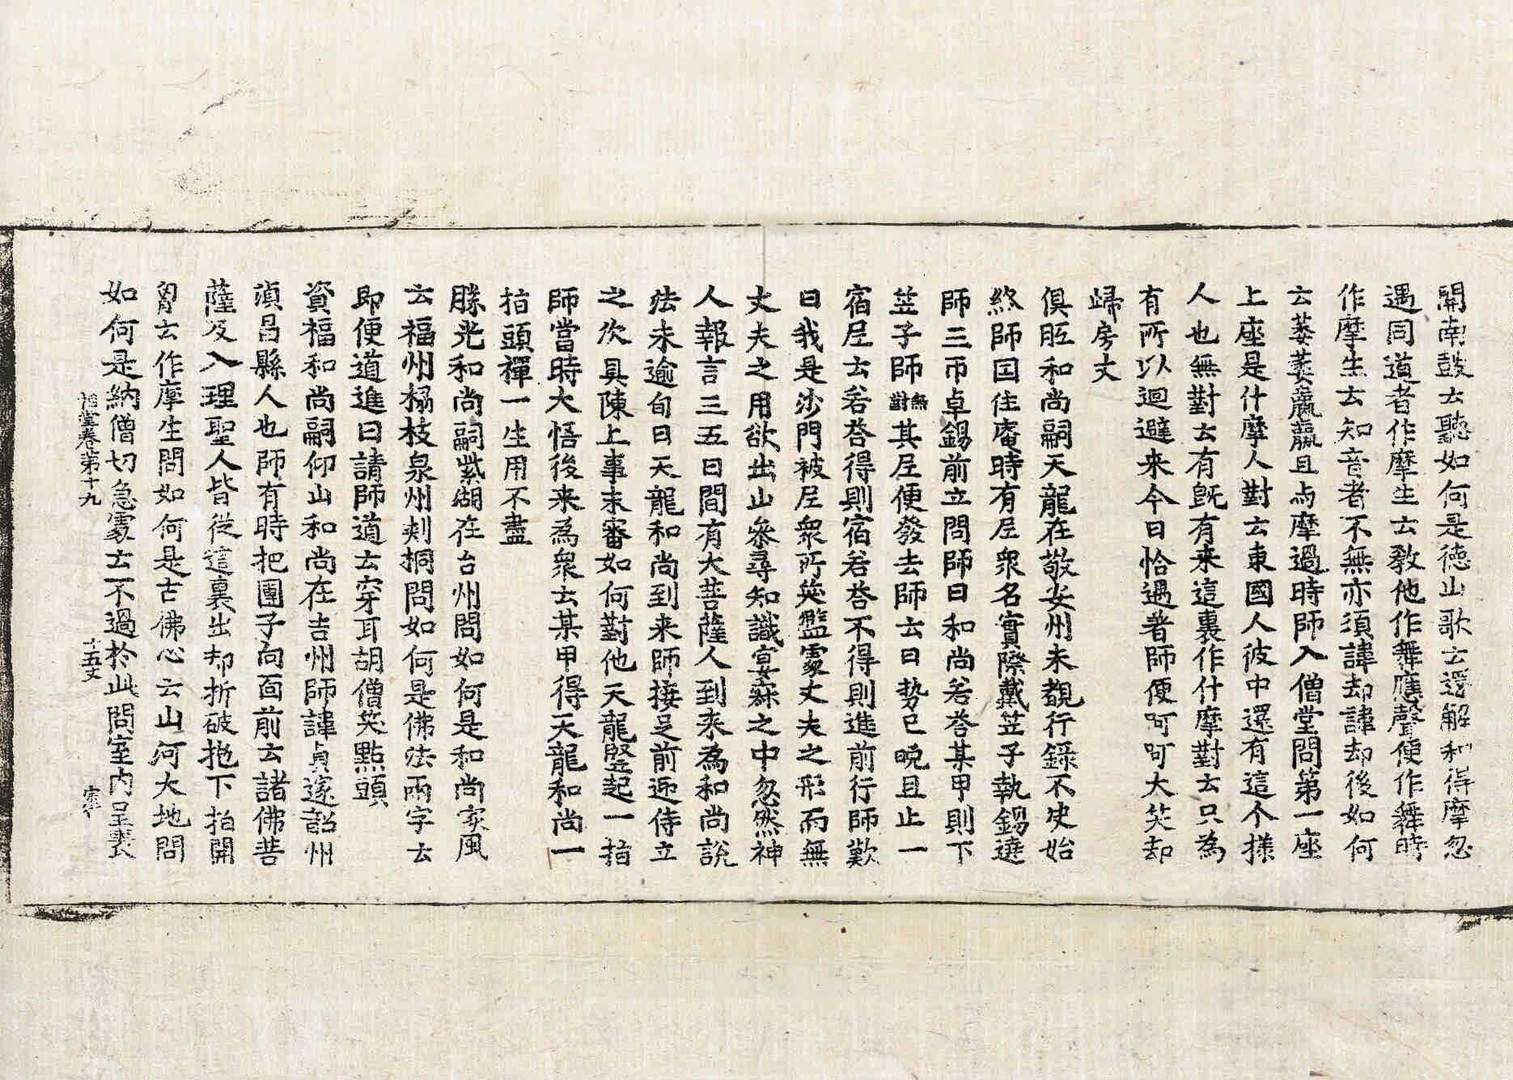 開南鼓去聽如何是德山歌云還解和得摩忽
遇同道者作摩生云教他作舞應聲便作舞時
作摩生云知音者不無亦須諱却諱却後如何
云萎萎羸羸且与摩過時師入僧堂問第一座
上座是什摩人對云東國人彼中還有這个樣
人也無對云有旣有来這裏作什摩對云只為
有所以迴避来今日恰遇著師便呵呵大笑却
歸房丈
俱胝和尚嗣天龍在敬安州未覩行錄不决始
終師因住庵時有尼衆名實際戴笠子執錫遶
師三帀卓錫前立問師曰和尚若荅某甲則下
笠子師無對其尼便發去師云日勢已晚且止一
宿尼云若荅得則宿若荅不得則進前行師歎
曰我是沙門被尼衆所笑濫處丈夫之形而無
丈夫之用欲出山叅尋知識宴寐之中忽然神
人報言三五日間有大菩薩人到来為和尚說
法未逾旬日天龍和尚到来師接足前迎侍立
之次具陳上事未審如何對他天龍竪起一指
師當時大悟後来為衆云某甲得天龍和尚一
指頭禪一生用不盡
勝光和尚嗣紫湖在台州問如何是和尚家風
云福州橘枝泉州刾桐問如何是佛法兩字云
即便道進曰請師道云穿耳胡僧笑點頭
資福和尚嗣仰山和尚在吉州師諱貞邃韶州
湞昌縣人也師有時把團子向面前云諸佛菩
薩及入理聖人皆従這裏出却折破抛下拍開
胷云作摩生問如何是古佛心云山河大地問
如何是納僧切急處云不過於此問室内呈喪
祖堂卷第十九 十五丈